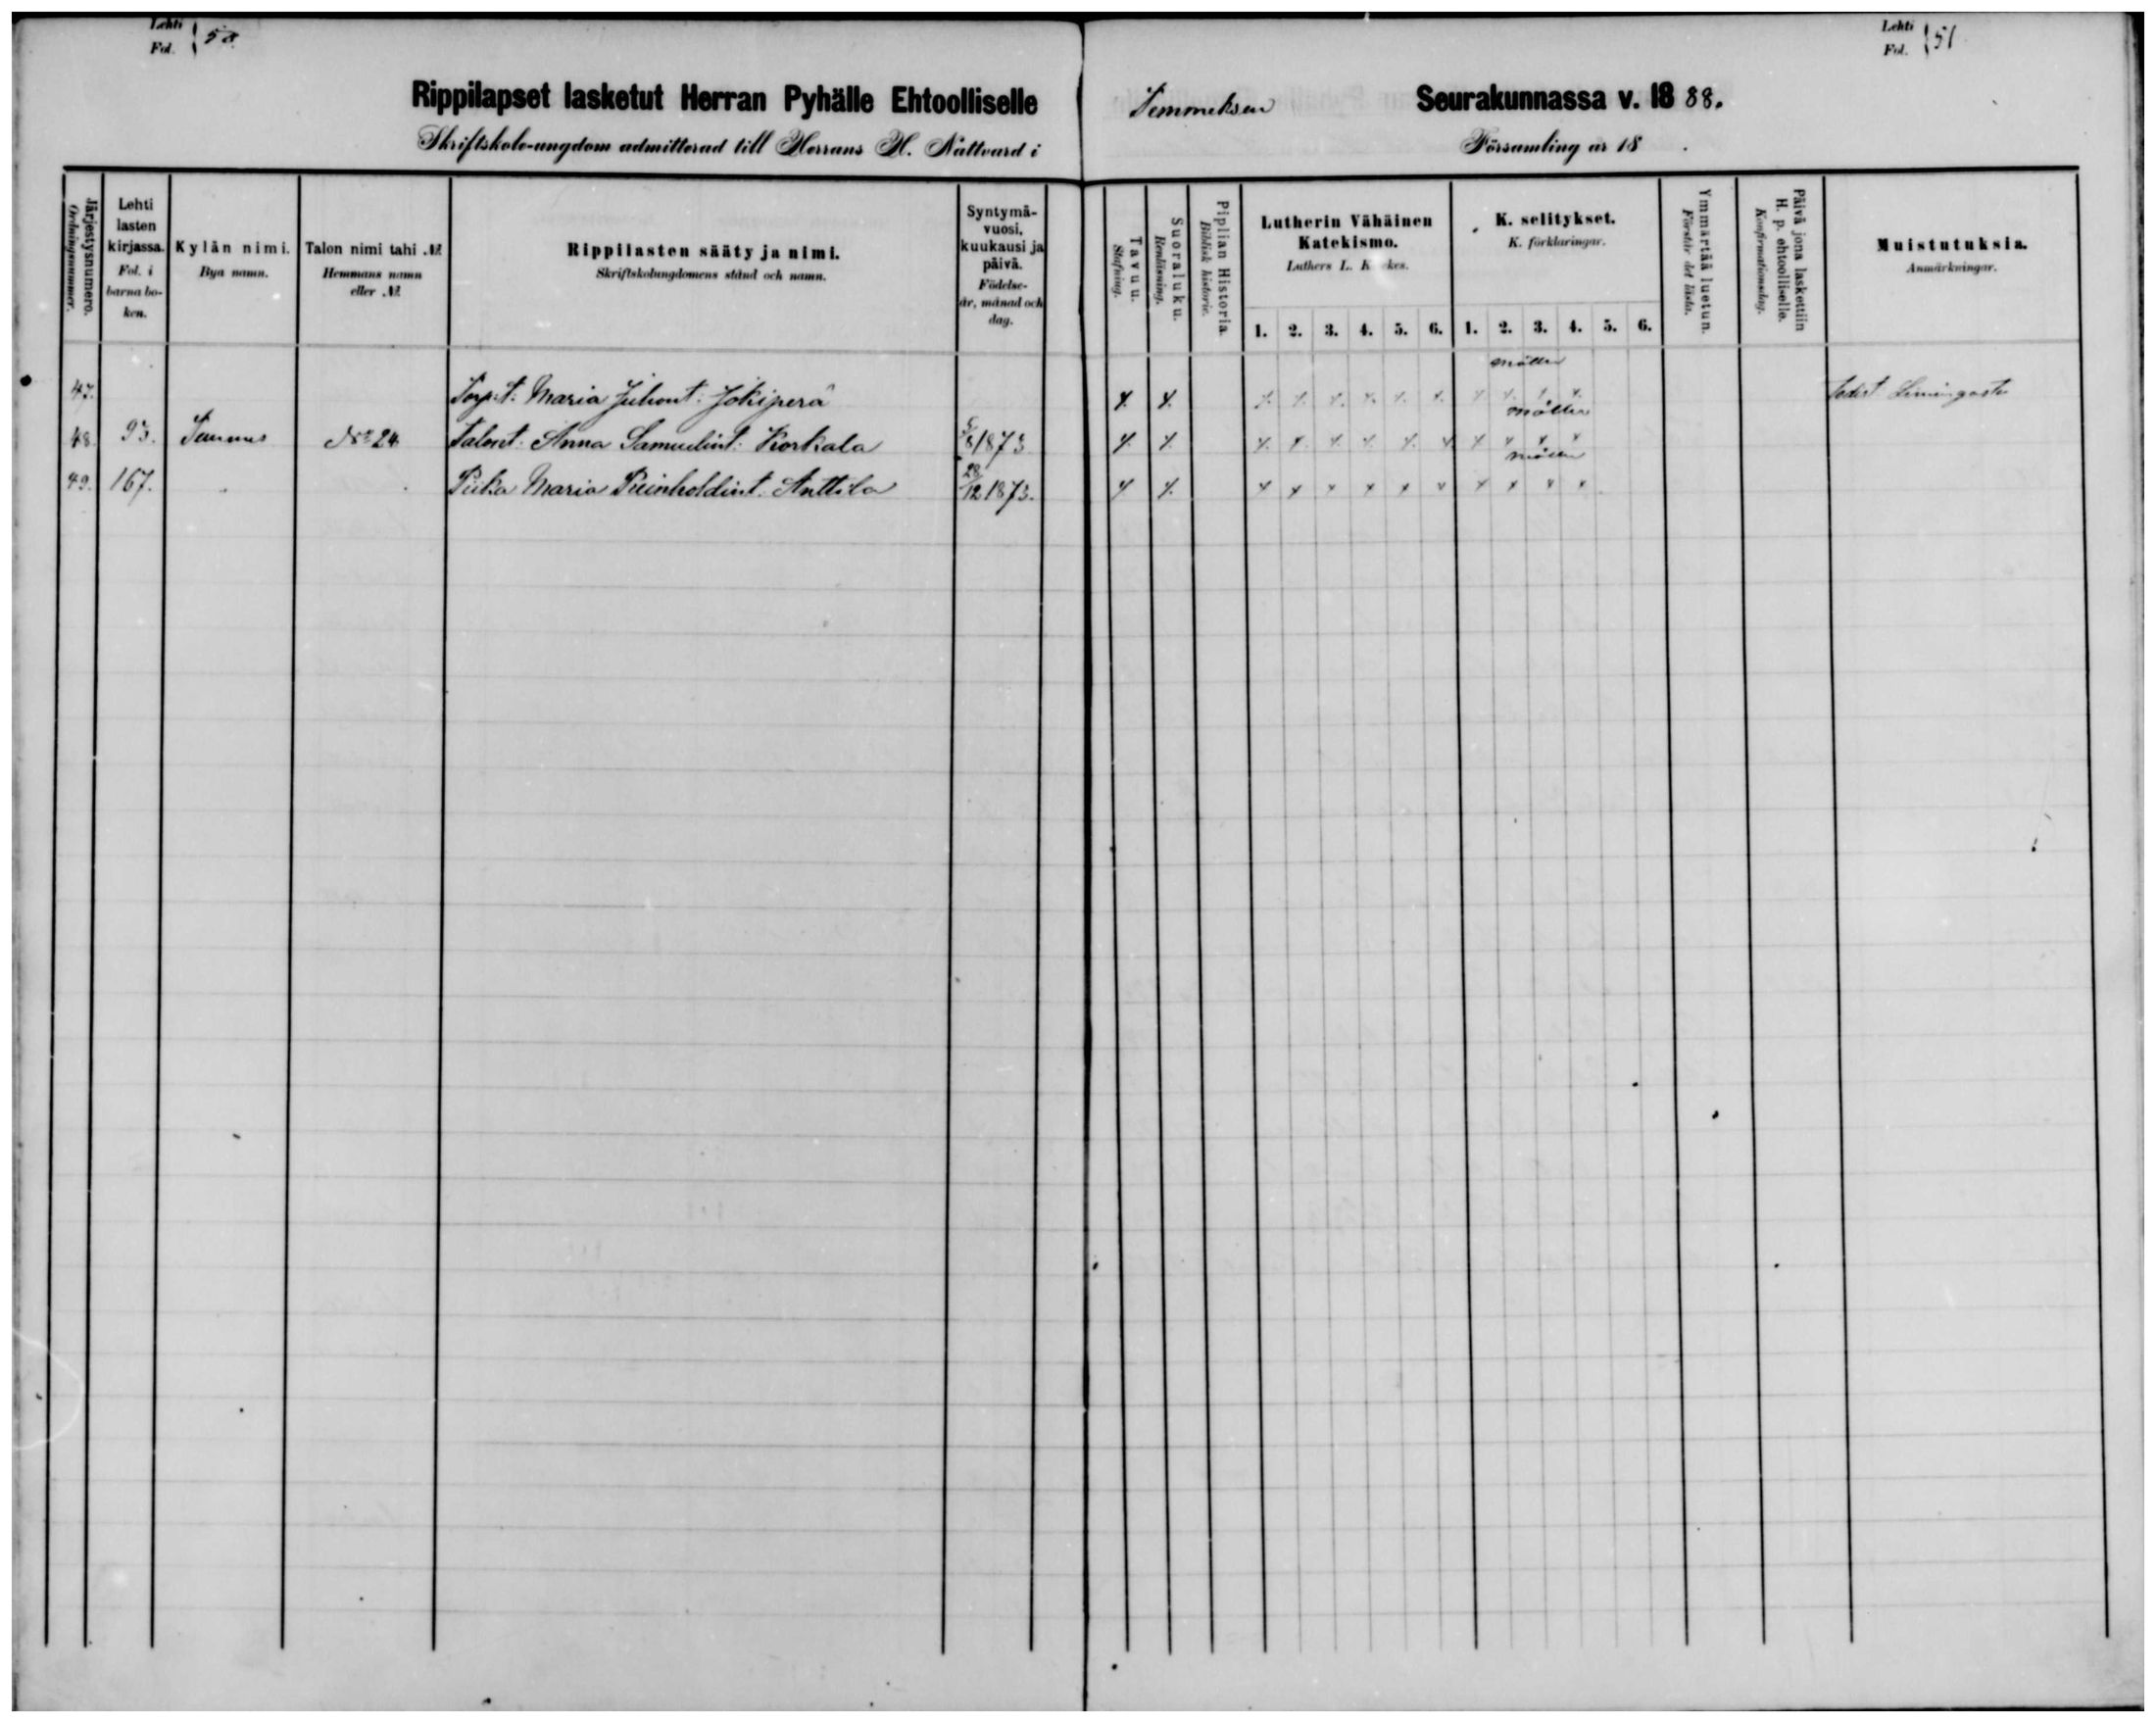 Lehti Fol. 50
Lehti Fol. 51
Rippilapset lasketut Herran Pyhälle Ehtoolliselle Temmeksen Seurakunnassa v. 1888.
Skriftskole-ungdom admitterad till Herrans H. Nattvard i Församling år 18 .
Järjestysnumero. Ordningsnummer.
Lehti lasten kirjassa. Fol. i barnaboken.
Kylän nimi. Bya namn.
Talon nimi tahi №. Hemmans namn eller №.
Rippilasten sääty ja nimi. Skriftskolungdomens stånd och namn.
Syntymävuosi, kuukausi ja päivä. Födelseår, månad och dag.
Tavuu. Stafning.
Suoraluku. Renläsning.
Piplian Historia. Biblisk historie.
Lutherin Vähäinen Katekismo. Luthers L. K ekes.
1. 2. 3. 4. 5. 6.
K. selitykset. K. förklaringar.
1. 2. 3. 4. 5. 6.
Ymmärtää luetun. Förstår det lästa.
Päivä jona laskettiin H. p. ehtoolliselle. Konfirmationsdag.
Muistutuksia. Anmärkningar.
möller
47. Torp.t: Maria Juhont: Jokiperä x x x x x x x x x x x x Todist Limingasta
möller
48. 93. Temmes N:o 24 Talont: Anna Samuelint: Korkala 5/8 1873 x x x x x x x x x x x x
möller
49. 167. " " Piika Maria Reinholdint. Anttila 28/12 1873. x x x x x x x x x x x x